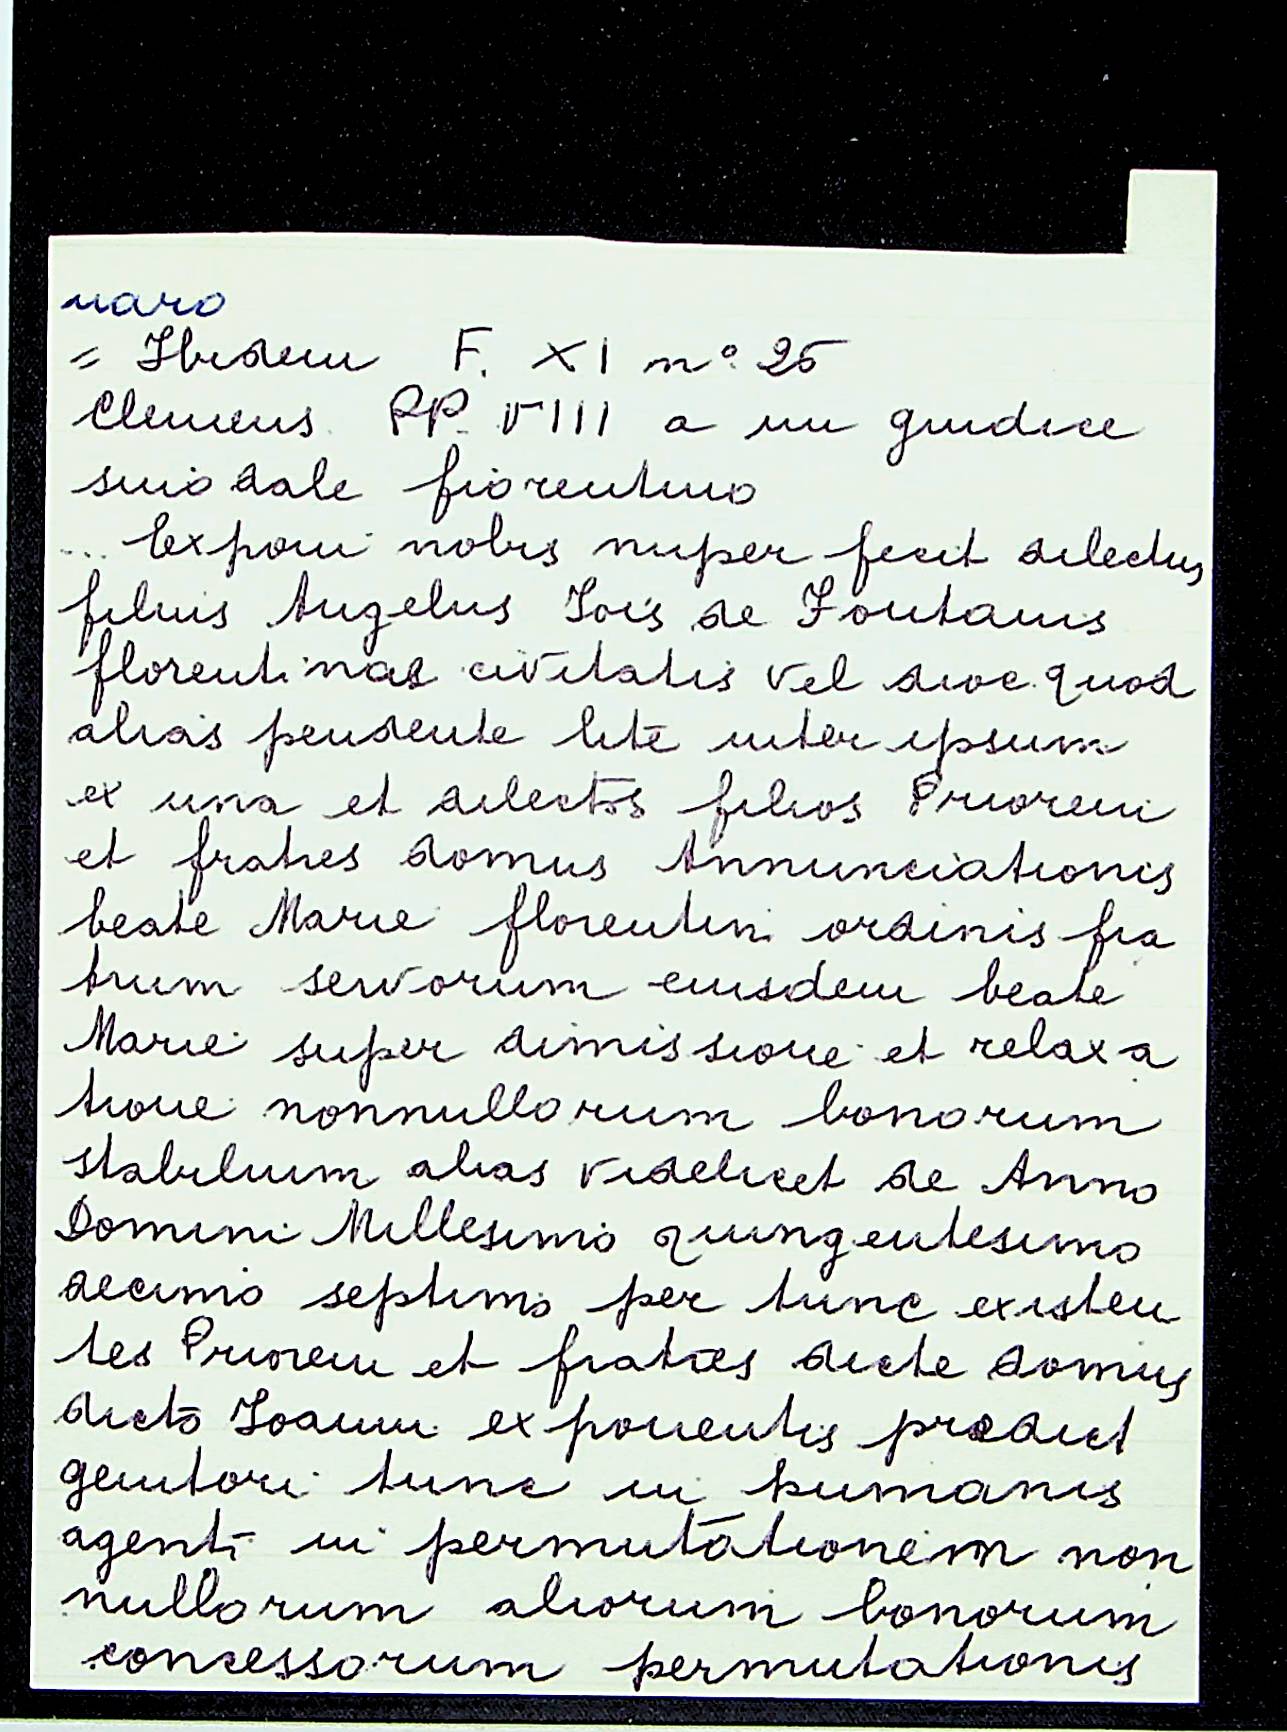 naro
= Ibidem F. XI n° 25
Clemens PP VIII a un giudice
sinodale fiorentino
... Exponi nobis nuper fecit dilectus
filius Angelus Iois de Fontanis
florentinae civitatis vel dioc. quod
alias pendente lite inter ipsum
ex una et dilectos filios Priorem
et fratres domus Annunciationis
beate Marie florentin ordinis fra
trum servorum eiusdem beate
Marie super dimissione et relaxa
tione nonnullorum bonorum
stabilium alias videlicet de Anno
Domini Millesimo quingentesimo
decimo septimo per tunc existen
tes Priorem et fratres dicte domus
dicto Ioanni exponentis predict
genitori tunc in humanis
agenti in permutationem non
nullorum aliorum bonorum
concessorum permutationis